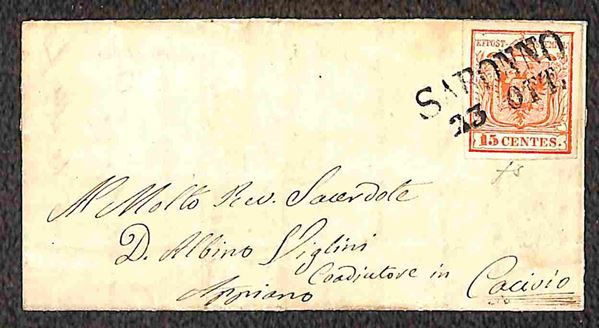 KFPOST STEMPEL
SARONNO
23 OTT.
15 CENTES.
Al Molto Rev. Sacerdote
D. Albino Viglini
Coadiutore in
Appiano Cacivio